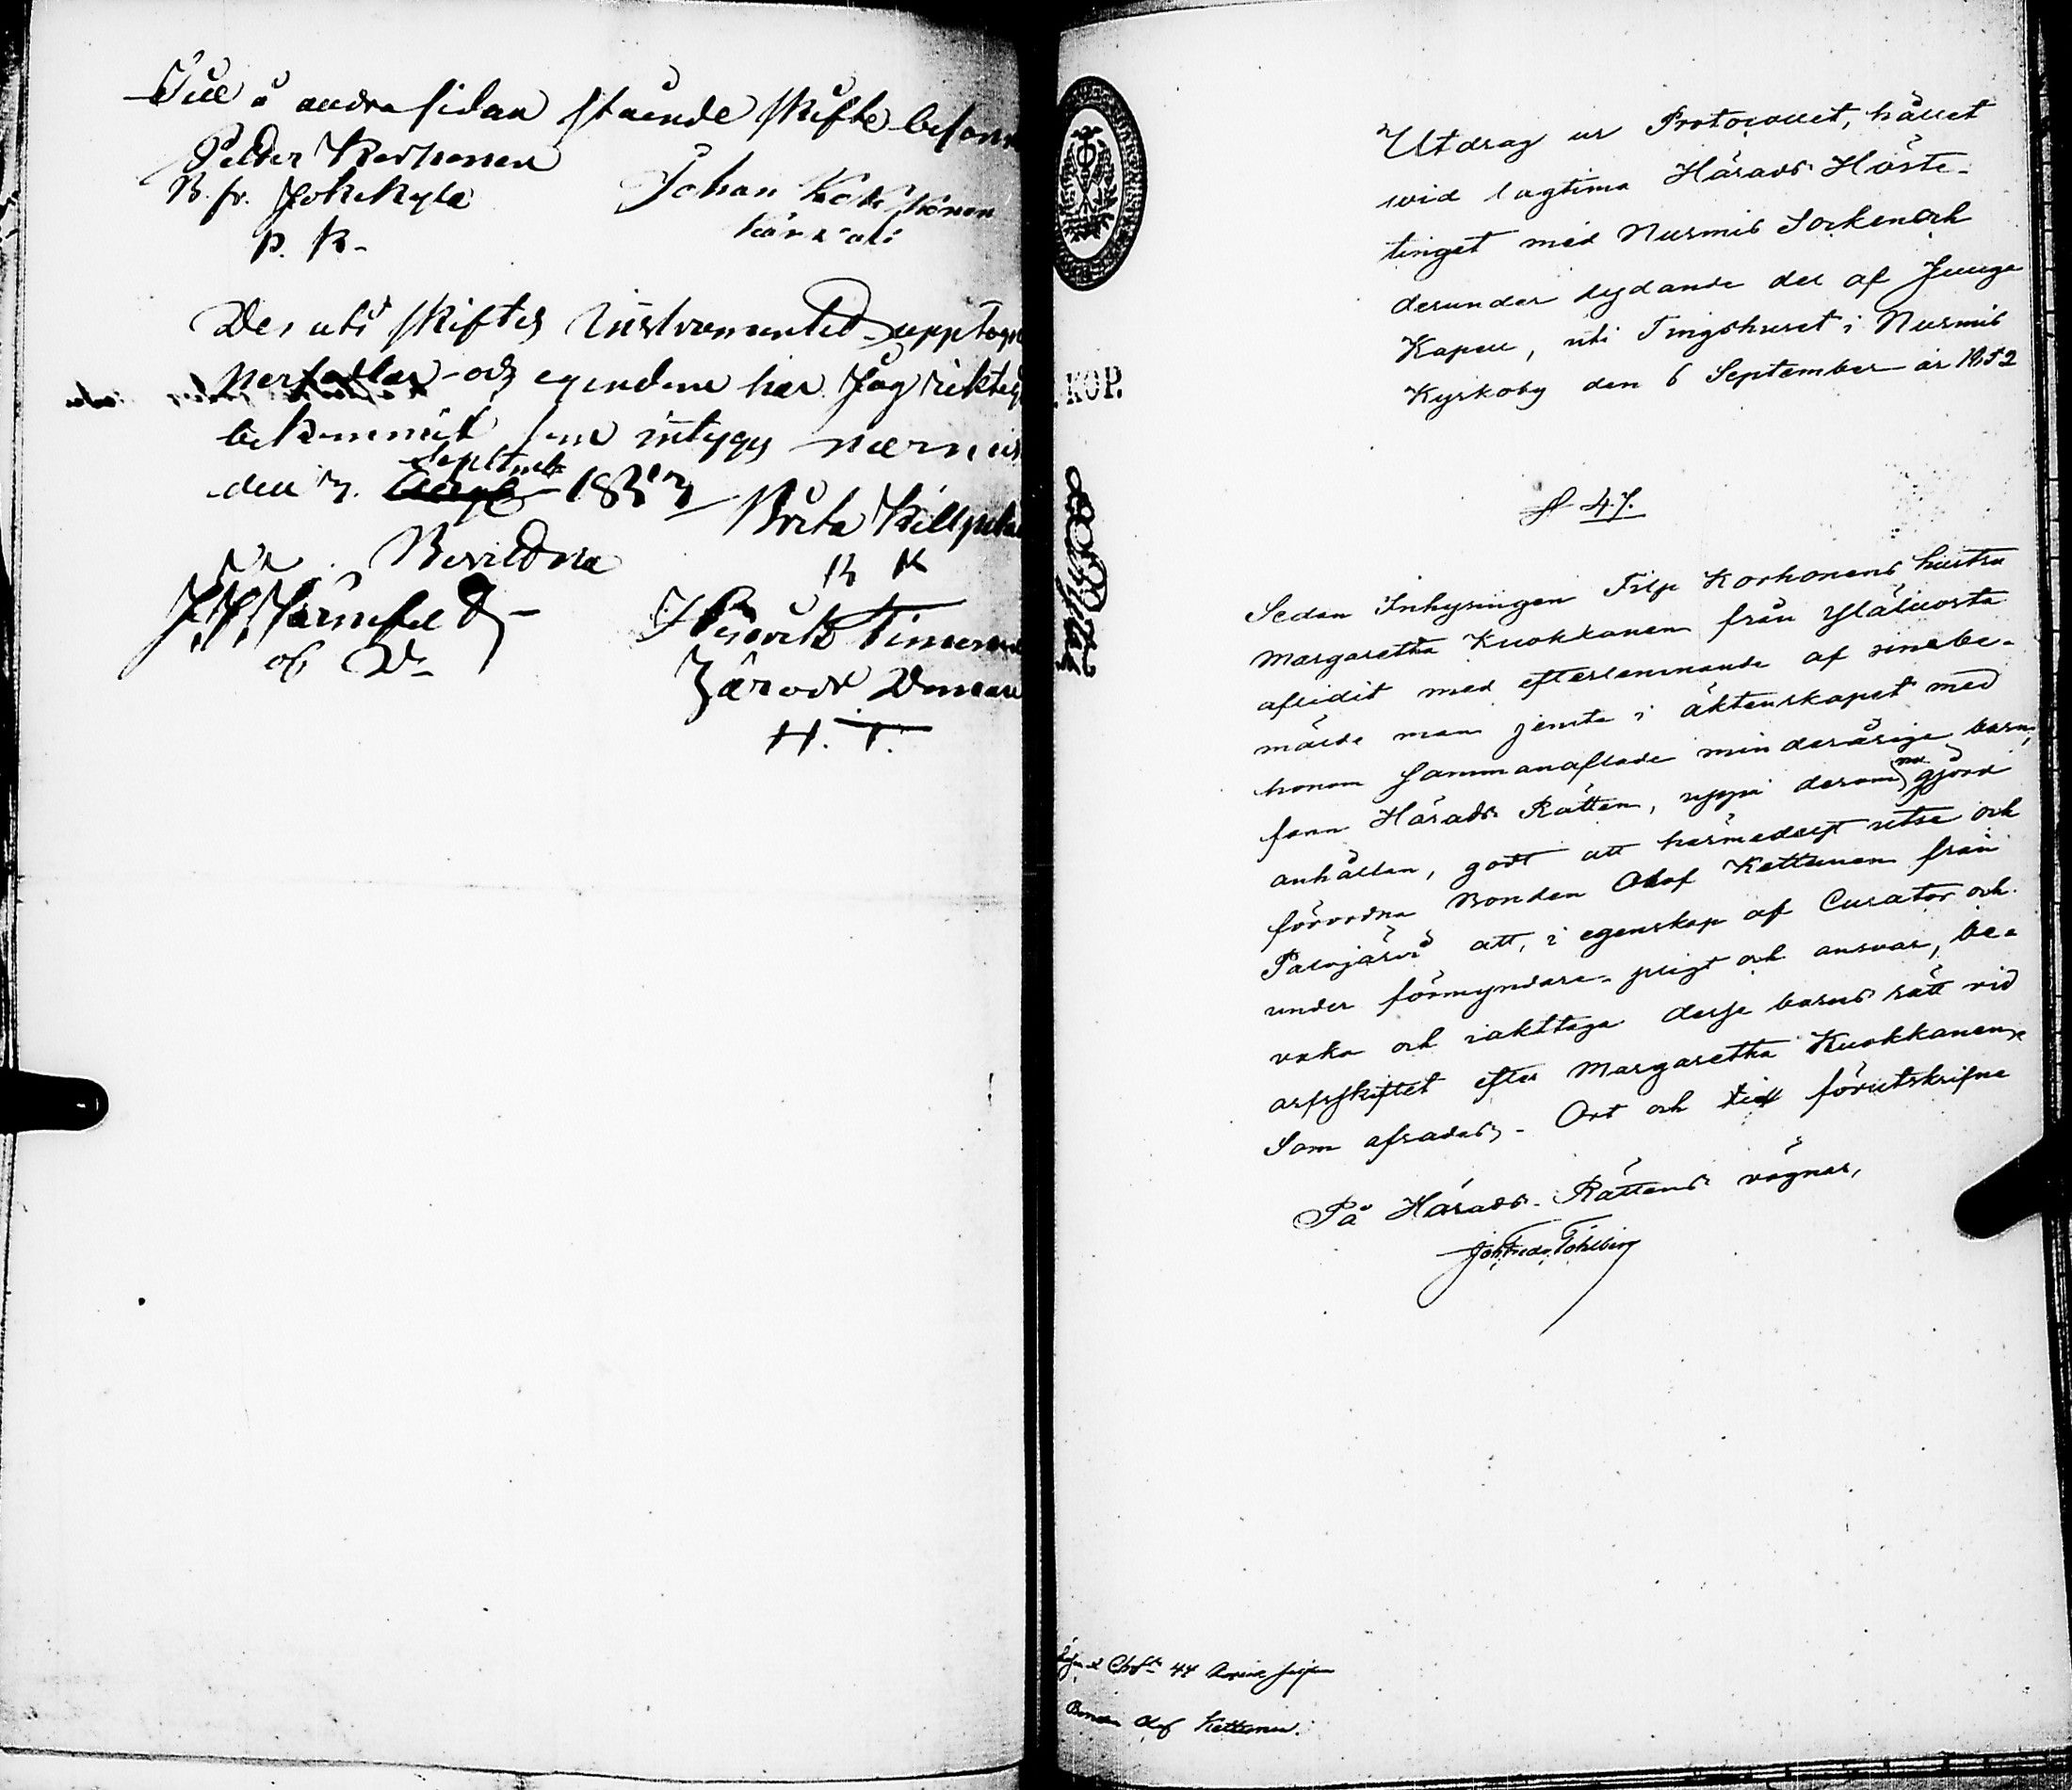 Till å andra sidan stående skifte
Petter Korhonen
B. fr. Jokikylä
P. K.
Johan
De uti skiftes Instrumentet
och egendom har Jag
bekommit som intygas
Septemb
den 7. 185
Brita
B K
Bevittna
J. H. Järnefelt
Henrik Timonen
H. T.
Utdrag ur Protocollet, hållet
wid lagtima Härads Höste-
tinget med Nurmis Socken och
derunder lydande del af Juuga
Kapell, uti Tingshuset i Nurmis
Kyrkoby den 6 September år 1852
KOP.
§ 47.
Sedan Inhysingen Filip Korhonens hustru
Margaretha Kuokkanen från Yläluosta
aflidit med efterlemnande af sinebe-
mälde man jemte i äktenskapet med
honom sammanaflade minderåriga barn,
fann Härads Rätten, uppå derom nu gjord
anhållan, godt att härmedelst utse och
förordna Bonden Olof Kettunen från
att, i egenskap af Curator och
under förmyndare-pligt och ansvar, be-
vaka och iakttaga desse barns rätt vid
arfskiftet efter Margaretha Kuokkanen,
Som afsades. Ort och tid förutskrifne
På Härads Rättens vägnar,
Bonden Olof Kettunen.